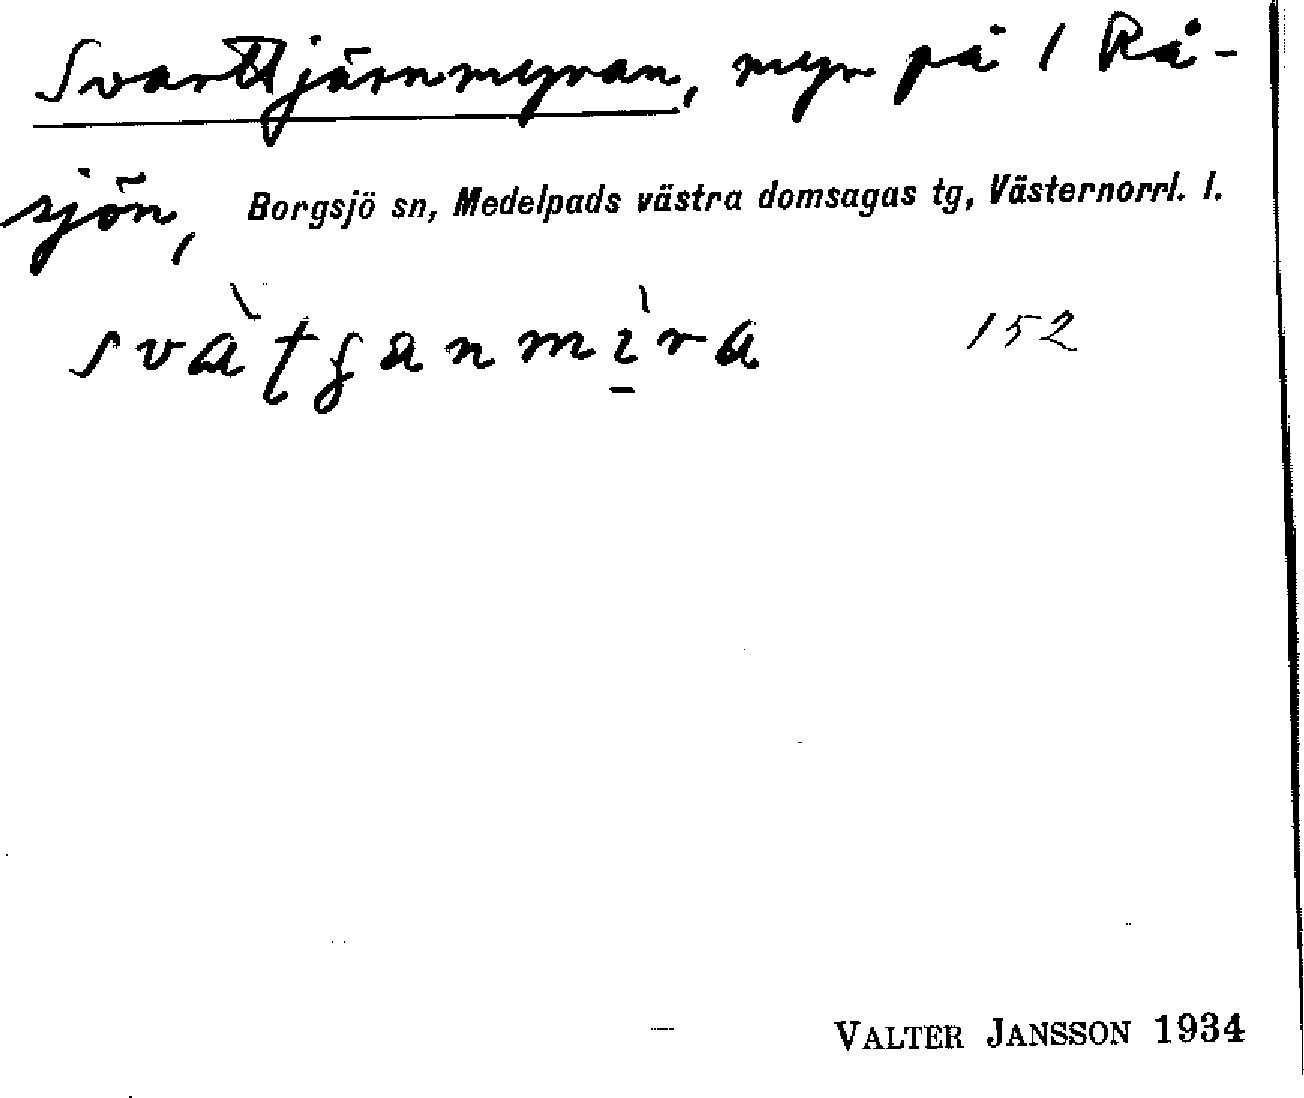 Svarttjärnmyran, myr på 1 Rå-
sjön, Borgsjö sn, Medelpads västra domsagas tg, Västernorrl. l.
svàtʃanmìra 152
VALTER JANSSON 1934